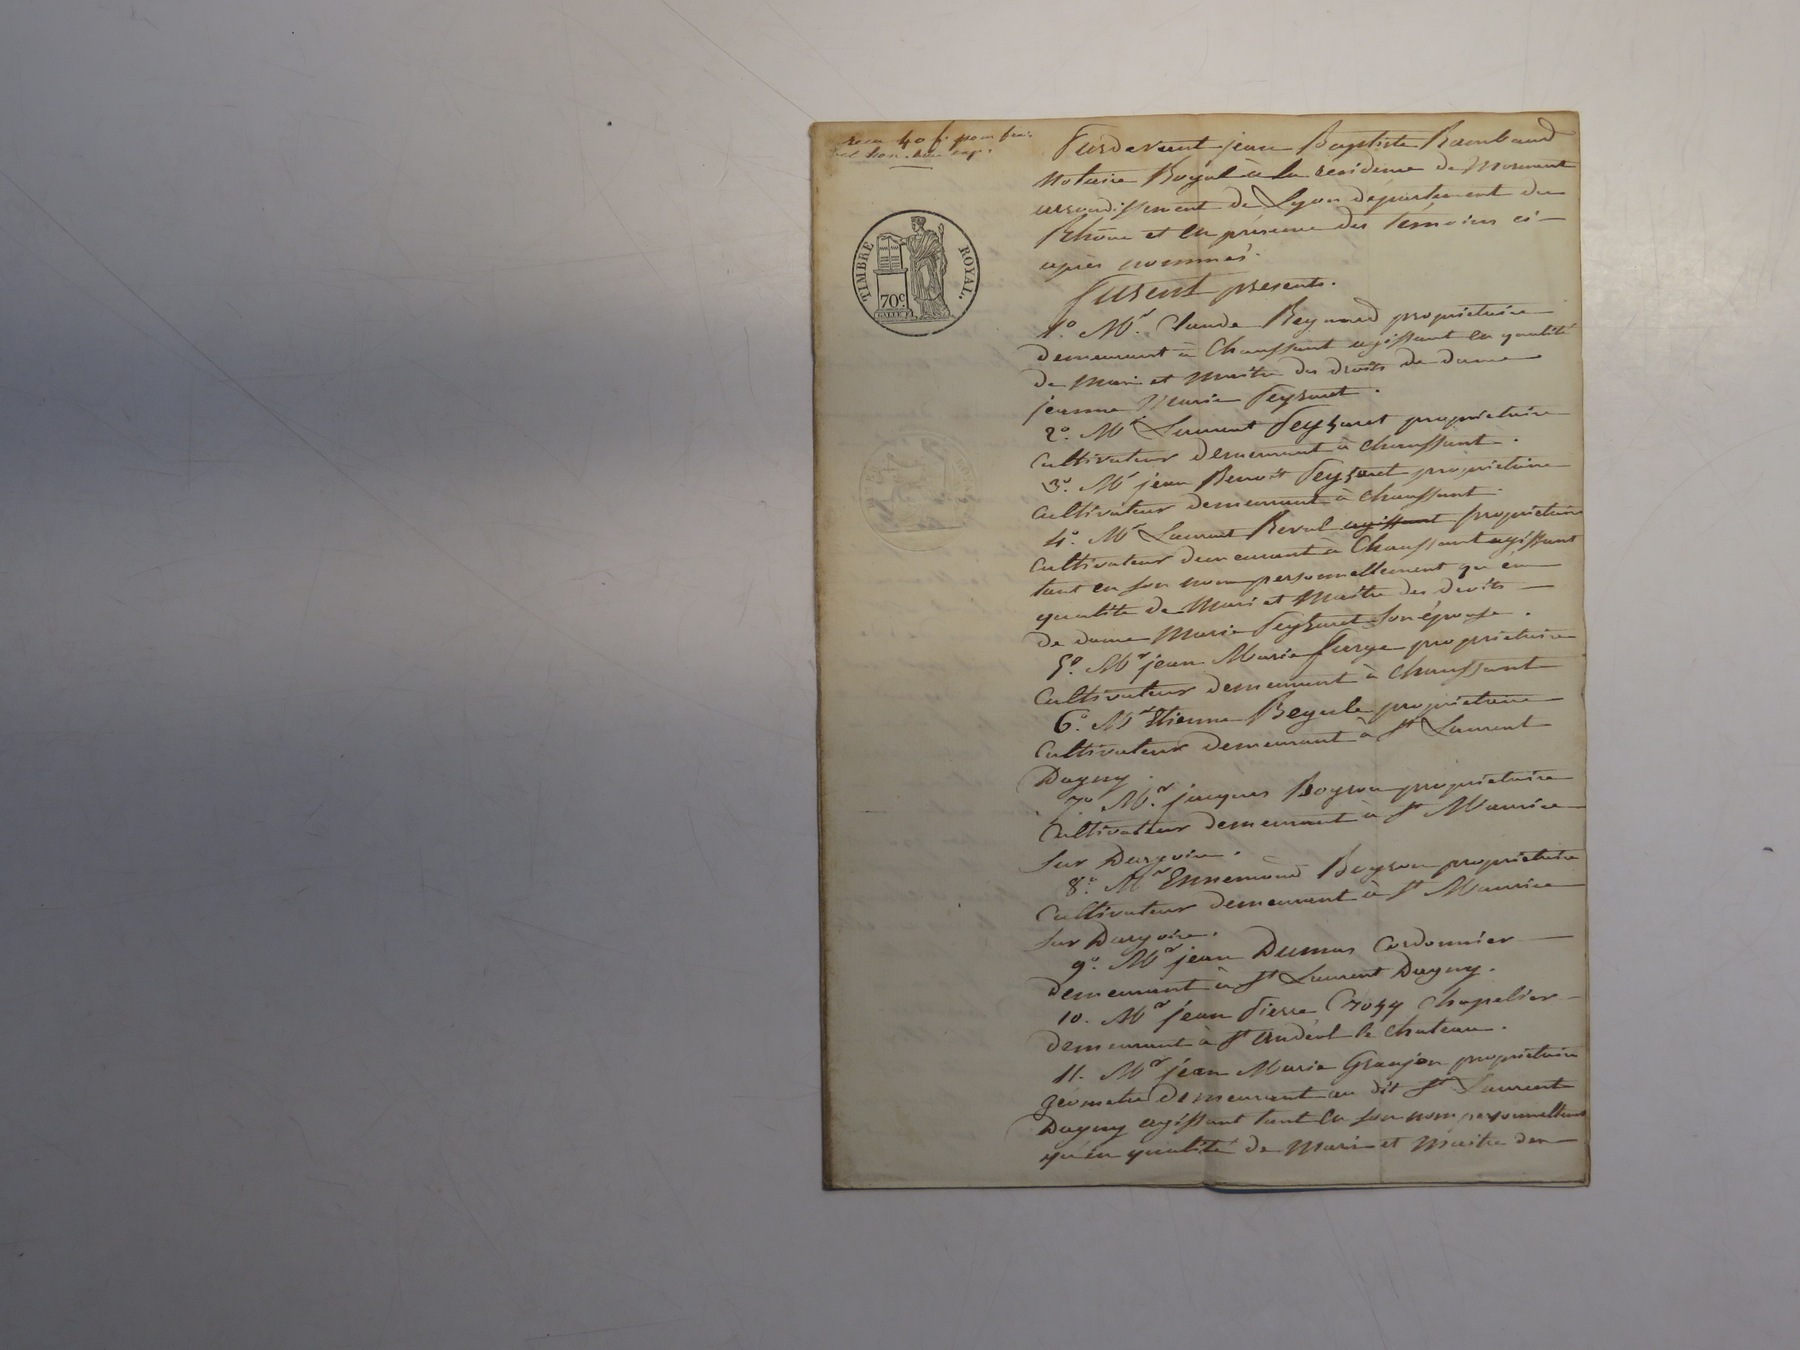 reçu 40 f. pour frais
Pardevant jean Baptiste Rambaud
Notaire Royal à la residence de Mornant
arrondissement de Lyon département du
Rhône et en présence des témoins ci-
après nommés.
furent présents.
1° Mr. Claude Reynard propriétaire
demeurant à Chaussant agissant en qualité
de Mari et Maitre des droits de dame
jeanne Marie Peyzaret.
2° Mr Laurent Peyzaret propriétaire
Cultivateur demeurant à Chaussant.
3° Mr jean Benoit Peyzaret propriétaire
Cultivateur demeurant à Chaussant.
4° Mr Laurent Reval agissant propriétaire
Cultivateur demeurant à Chaussant agissant
tant en son nom personnellement qu'en
qualité de Mari et Maitre des droits
de dame Marie Peyzaret son épouse.
5° Mr jean Marie propriétaire
Cultivateur demeurant à Chaussant
6° Mr Etienne propriétaire
Cultivateur demeurant à St Laurent
Dagny.
7° Mr. jacques Boyron propriétaire
Cultivateur demeurant à St Maurice
sur Dargoire.
8° Mr Ennemond Boyron propriétaire
Cultivateur demeurant à St Maurice
sur Dargoire.
9° Mr jean Dumas Cordonnier
demeurant à St Laurent Dagny.
10. Mr jean Pierre Chapelier
demeurant à St Andéol le Chateau.
11. Mr jean Marie Granjon propriétaire
géometre demeurant au dit St Laurent
Dagny agissant tant en son nom personnellement
qu'en qualité de Mari et Maitre des
TIMBRE ROYAL.
70c